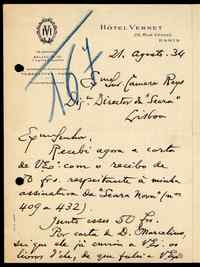 HÔTEL VERNET
25, RUE VERNET
PARIS
167
21. agosto. 34
Exmo Snr Camara Reys
Digº Director da "Seara"
Lisboa
Exmo Senhor.
Recebi agora a carta
de V. Exº. com o recibo de
50 frs. respeitante à minha
assinatura da "Seara Nova" (nos
409 a 432).
Junto esses 50 frs.
Por carta de D. Marcelino,
sei que ele já enviou a V. Exº. os
livros d'ele, de que falei a V. Exº